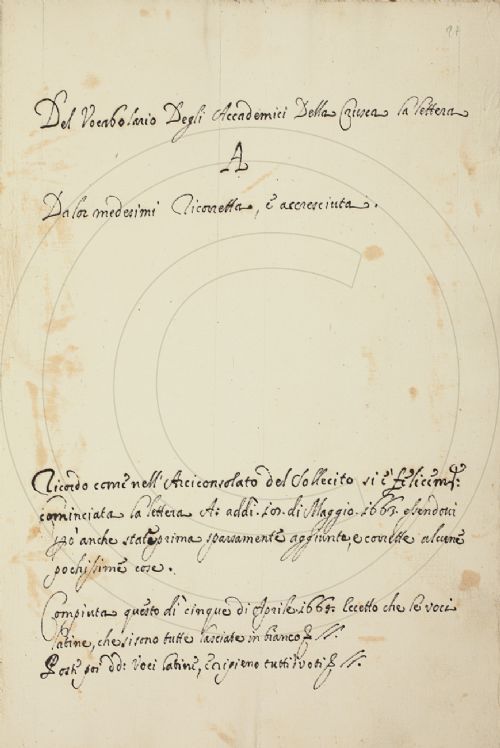 27
Del Vocabolario Degli Accademici Della Crusca la lettera
A
Da lor medesimi Ricorretta, e accresciuta.
Ricordo come nell'Arciconsolato del Sollecito si è felicem.te
cominciata la lettera A: addì .10. di Maggio .1663. essendoci
però anche state prima sparsamente aggiunte, e corrette alcune
pochissime cose.
Compiuta questo dì cinque di Aprile 1665: Eccetto che le voci
latine, che si sono tutte lasciate in bianco
dd: voci latine, e ripieno tutti i voti